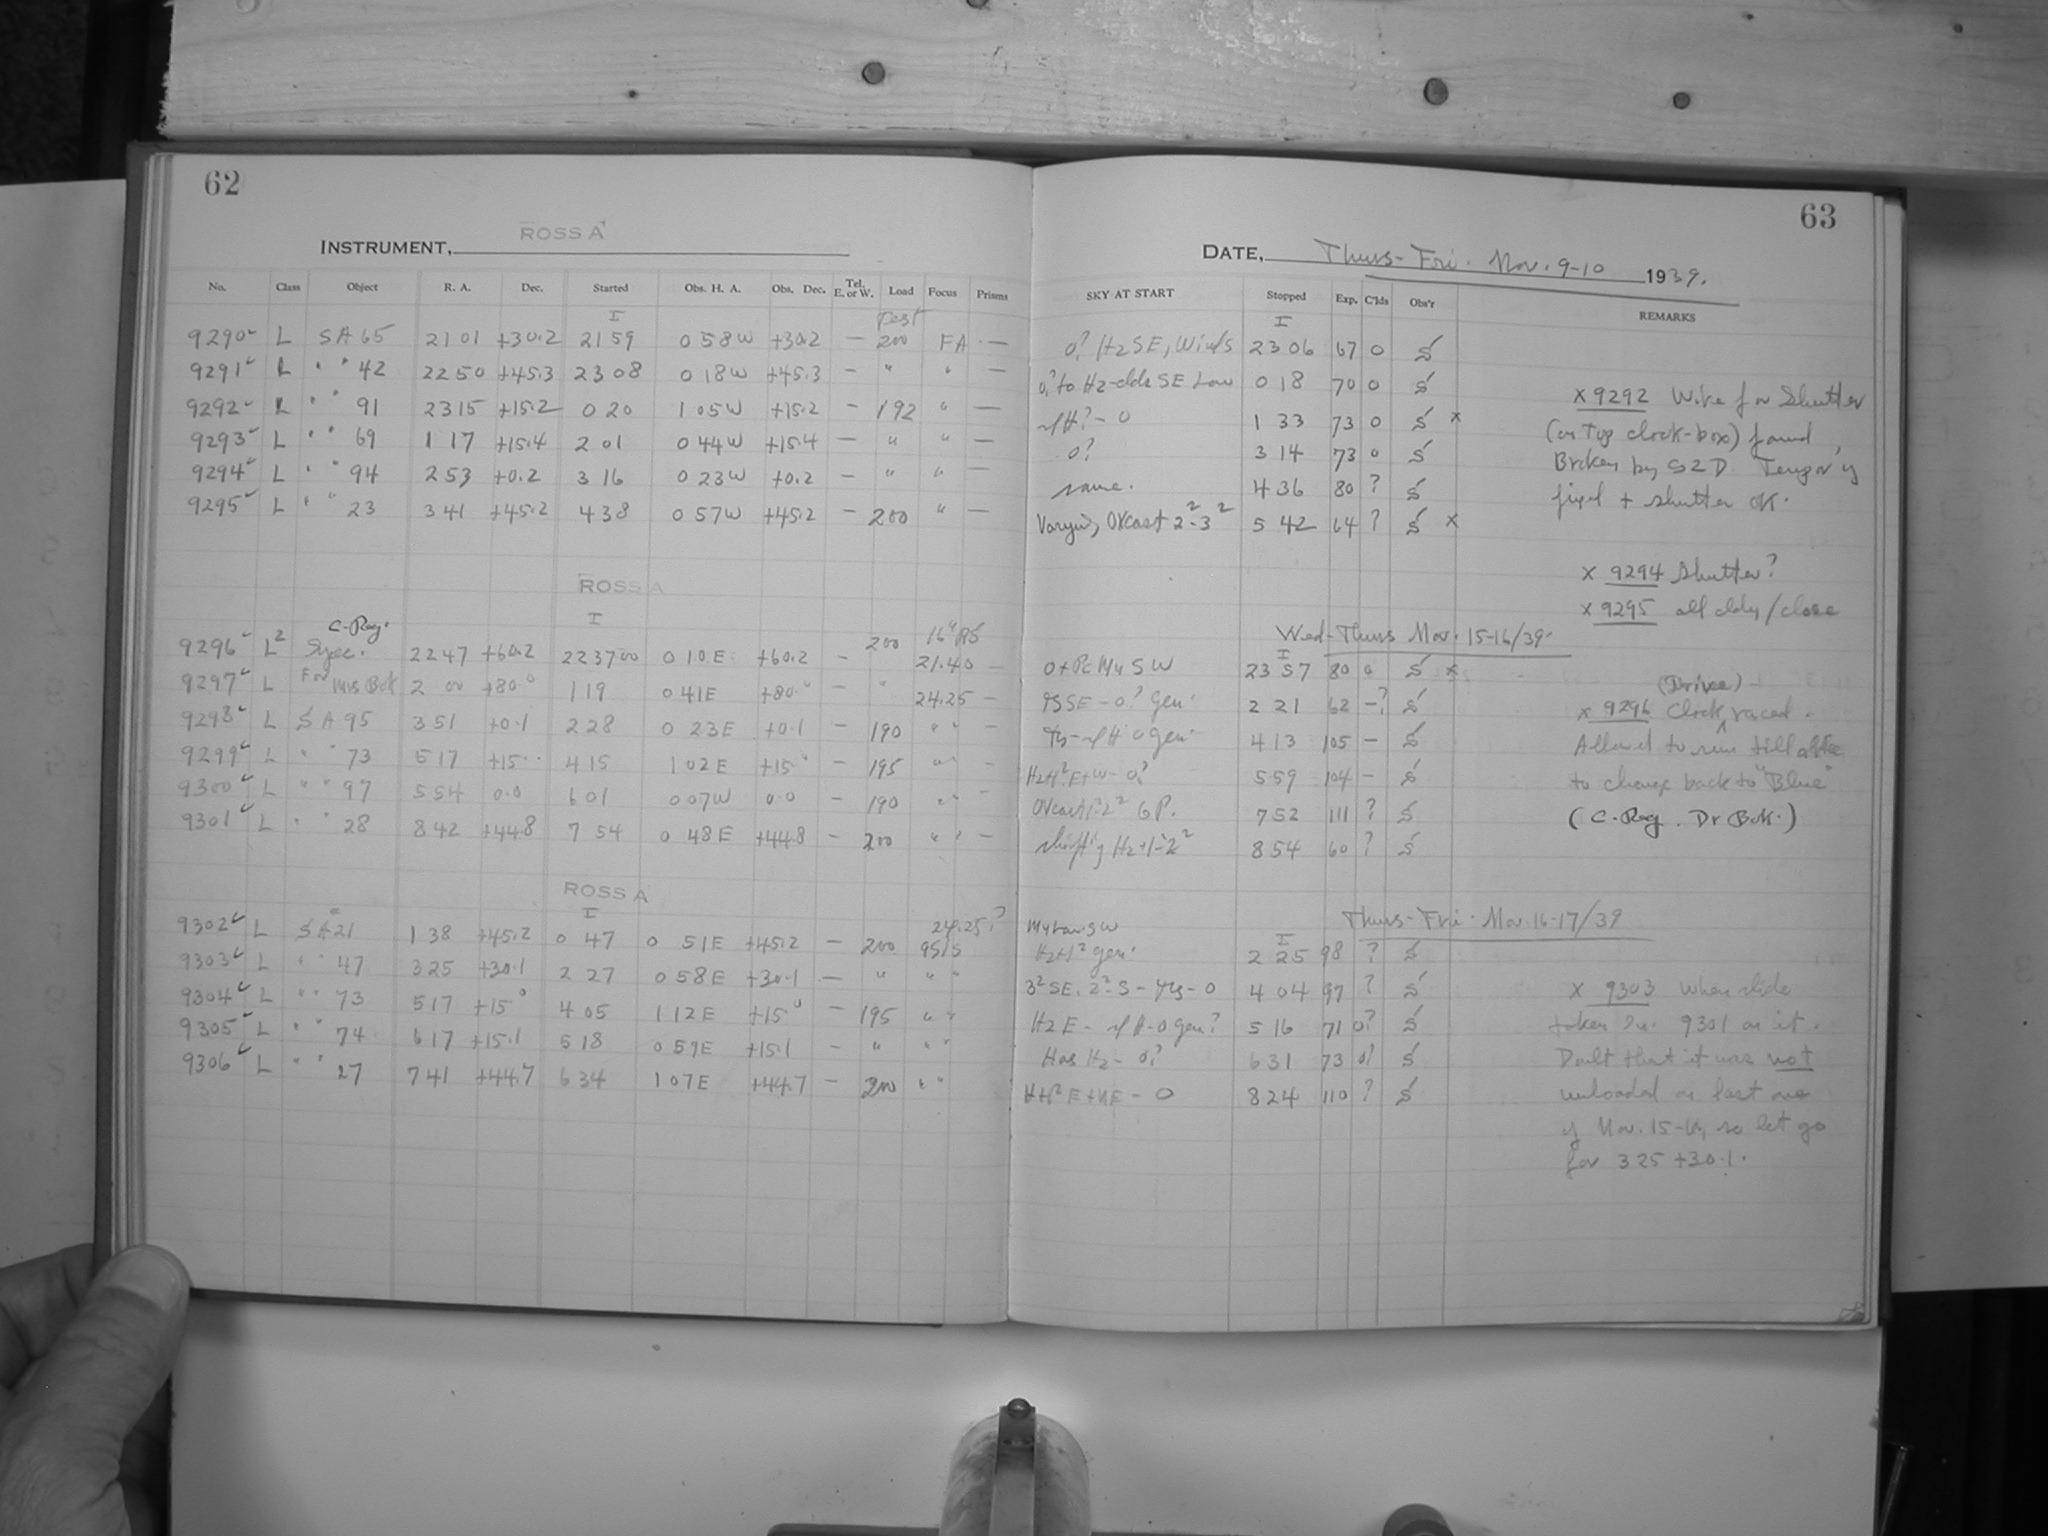 62
INSTRUMENT, ROSS A
No. Class Object R. A. Dec. Started Obs. H. A. Obs. Dec. Tel. E. or W. Load Focus Prisms
I Test
9290 ✓ L SA 65 21 01 +30.2 21 59 0 58 W +30.2 — 200 FA —
9291 ✓ L " " 42 22 50 +45.3 23 08 0 18 W +45.3 — " " —
9292 ✓ L " " 91 23 15 +15.2 0 20 1 05 W +15.2 — 192 " —
9293 ✓ L " " 69 1 17 +15.4 2 01 0 44 W +15.4 — " " —
9294 ✓ L " " 94 2 53 +0.2 3 16 0 23 W +0.2 — " " —
9295 ✓ L " " 23 3 41 +45.2 4 38 0 57 W +45.2 — 200 " —
ROSS A
I
C-Reg. 16"
9296 ✓ L² Spec. 22 47 +60.2 22 37 00 0 10 E +60.2 — 200 21.40 —
9297 ✓ L For Mrs Bok 2 00 +80.0 1 19 0 41 E +80.0 — " 24.25 —
9298 ✓ L SA 95 3 51 +0.1 2 28 0 23 E +0.1 — 190 " " —
9299 ✓ L " " 73 5 17 +15 4 15 1 02 E +15 — 195 " " —
9300 ✓ L " " 97 5 54 0.0 6 01 0 07 W 0.0 — 190 " " —
9301 ✓ L " " 28 8 42 +44.8 7 54 0 48 E +44.8 — 200 " " —
ROSS A
I 24.25?
9302 ✓ L SA 21 1 38 +45.2 0 47 0 51 E +45.2 — 200
9303 ✓ L " " 47 3 25 +30.1 2 27 0 58 E +30.1 — " " "
9304 ✓ L " " 73 5 17 +15 0 4 05 1 12 E +15 0 — 195 " "
9305 ✓ L " " 74 6 17 +15.1 5 18 0 59 E +15.1 — " " "
9306 ✓ L " " 27 7 41 +44.7 6 34 1 07 E +44.7 — 200 " "
63
DATE, Thurs-Fri. Nov. 9-10 1939.
SKY AT START Stopped Exp. C'lds Obs'r REMARKS
I
0? H2 SE, Winds 23 06 67 0 S
0? to H2-clds SE Low 0 18 70 0 S
H? - 0 1 33 73 0 S x
0? 3 14 73 0 S
same. 4 36 80 ? S
Varying, Ovcast 2²-3² 5 42 64 ? S x
x 9292 Wire for Shutter
(on top clock-box) found
Broken by S2D. Tempor'y
fixed + shutter OK.
x 9294 Shutter?
x 9295 all cldy/close
Wed-Thurs Nov. 15-16/39.
I
SW 23 57 80 0 S x
SE - 0? gen. 2 21 62 -? S
0 gen. 4 13 105 — S
E+W - 0? 5 59 104 — S
Ovcast 1-2² GP. 7 52 111 ? S
shift'g H2+1-2² 8 54 60 ? S
(Drive)
x 9296 Clock ^ raced.
Allowed to run till
to change back to "Blue"
(C-Reg. Dr Bok.)
Thurs-Fri. Nov. 16-17/39
SW I
H2+1² gen. 2 25 98 ? S
3² SE. 2² S - - 0 4 04 97 ? S
H2 E - H-0 gen? 5 16 71 0? S
Has H2 - 0? 6 31 73 0? S
E+NE - 0 8 24 110 ? S
x 9303 when slide
taken 9301 on it.
Doubt that it was not
unloaded as last one
of Nov. 15-16, so let go
for 3 25 +30.1.